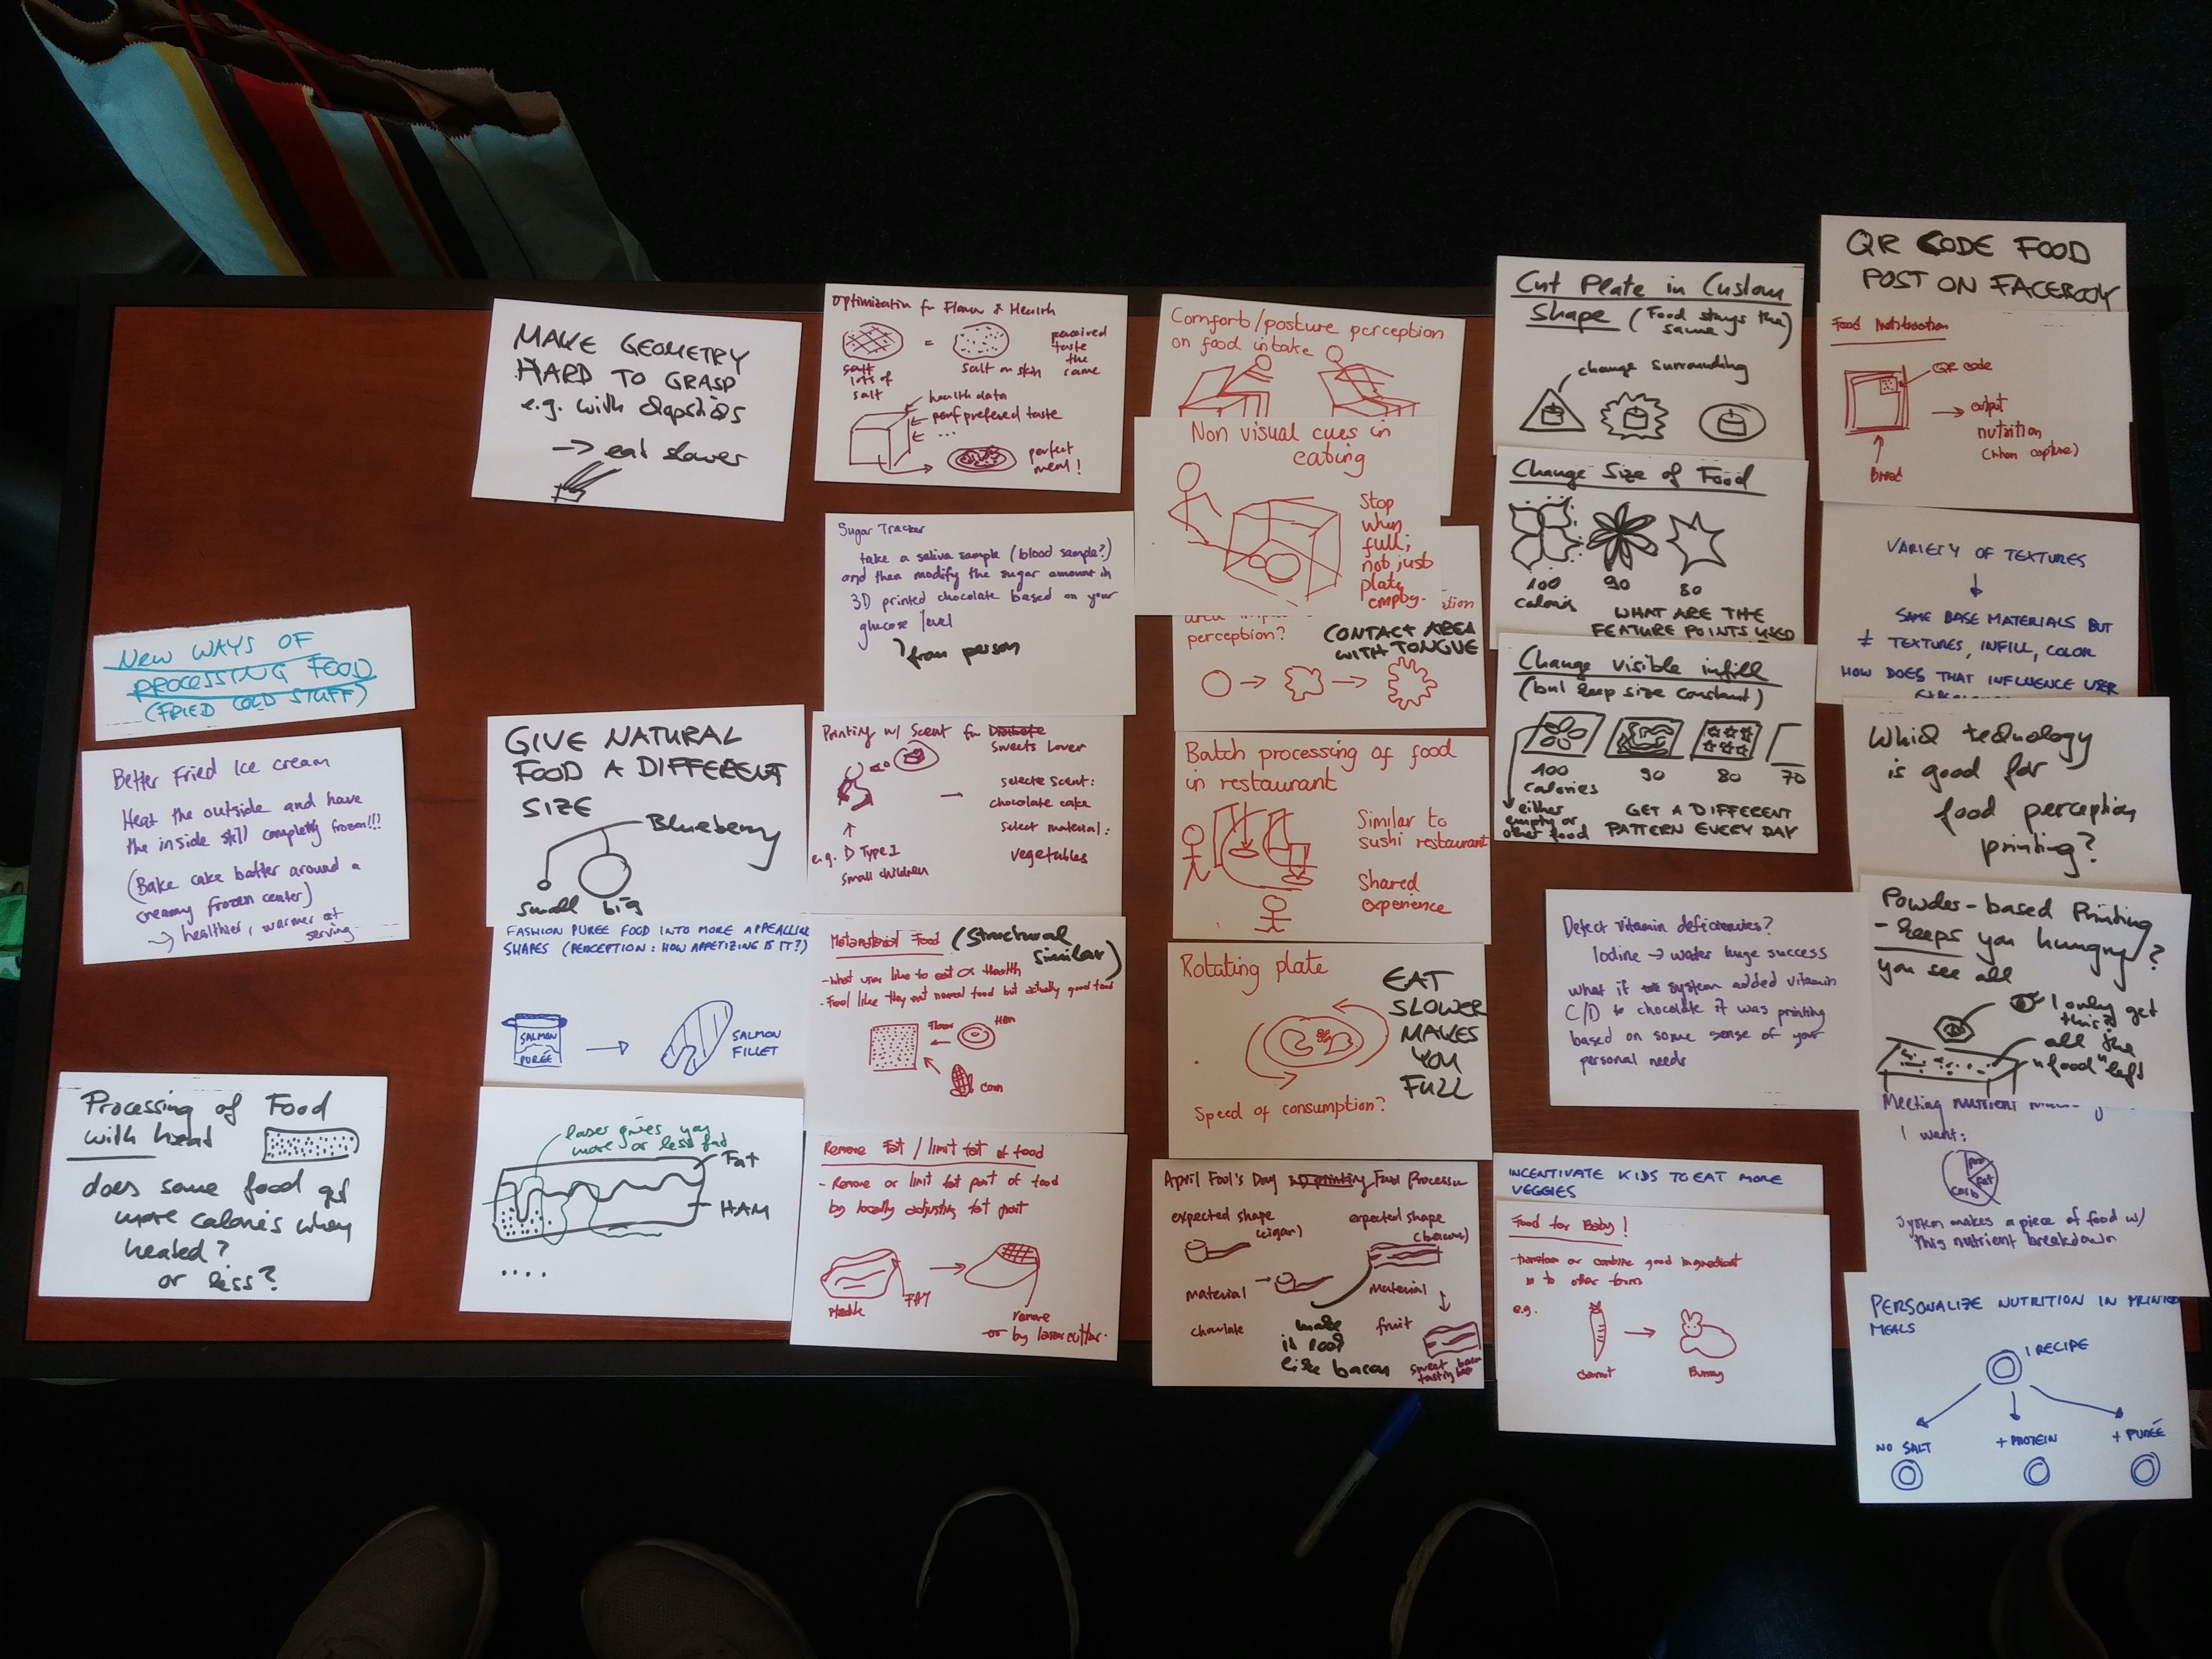 NEW WAYS OF
PROCESSING FOOD
(FRIED COLD STUFF)
Better Fried Ice cream
Heat the outside and have
the inside still completly frozen!!!
(Bake cake batter around a
creamy frozen center)
→ healthier, warmer at
serving
Processing of Food
with heat
does some food get
more calories when
heated?
or less?
MAKE GEOMETRY
HARD TO GRASP
e.g. with chopsticks
→ eat slower
GIVE NATURAL
FOOD A DIFFERENT
SIZE
Blueberry
small big
FASHION PUREE FOOD INTO MORE APPEALLING
SHAPES (PERCEPTION: HOW APPETIZING IS IT?)
SALMON
PURÉE
SALMON
FILLET
laser gives you
more or less fat
Fat
HAM
....
Optimization for Flavor & Health
=
lots of
salt
salt on skin
perceived
taste
the
same
health data
prefered taste
...
perfect
meal!
Sugar Tracker
take a saliva sample (blood sample?)
and then modify the sugar amount in
3D printed chocolate based on your
glucose level
from person
Printing w/ Scent for
Sweets Lover
selecte scent:
chocolate cake
Select material:
vegetables
e.g. D Type 1
small children
Metamaterial Food (Structural
similar)
- What user like to eat ≠ Health
- Feel like they eat normal food but actually good food
Flour
Ham
Corn
Remove Fat / limit fat of food
- Remove or limit fat part of food
by locally adjusting fat part
FAT
remove
by laser cutter.
Comfort/posture perception
on food intake
Non visual cues in
eating
Stop
when
full;
not just
plate
empty.
perception?
CONTACT AREA
WITH TONGUE
Batch processing of food
in restaurant
Similar to
sushi restaurant
Shared
experience
Rotating plate
EAT
SLOWER
MAKES
YOU
FULL
Speed of consumption?
April Fool's Day 3D printing Food Processor
expected shape
(cigar)
expected shape
(bacon)
material
chocolate
material
fruit
make
it look
like bacon
sweet
tasting
Cut Plate in Custom
Shape (Food stays the
same)
change surrounding
Change Size of Food
100
calories
90
80
WHAT ARE THE
FEATURE POINTS USED
Change visible infill
(but keep size constant)
100
calories
90
80
70
either
empty or
other food
GET A DIFFERENT
PATTERN EVERY DAY
Detect vitamin deficiencies?
Iodine → water huge success
what if system added vitamin
C/D to chocolate it was printing
based on some sense of your
personal needs
INCENTIVATE KIDS TO EAT MORE
VEGGIES
Food for Baby!
- transform or combine good ingredient
to other form
e.g.
carrot
Bunny
QR CODE FOOD
POST ON FACEBOOK
QR code
→ output
nutrition
(when capture)
Bread
VARIETY OF TEXTURES
SAME BASE MATERIALS BUT
≠ TEXTURES, INFILL, COLOR
HOW DOES THAT INFLUENCE USER
Which technology
is good for
food perception
printing?
Powder-based Printing
- keeps you hungry?
you see all
I only get
this?
all the
"food" left
Meeting nutrient
I want:
pro
fat
carb
System makes a piece of food w/
this nutrient breakdown
PERSONALIZE NUTRITION IN PRINTED
MEALS
1 RECIPE
NO SALT
+ PROTEIN
+ PURÉE